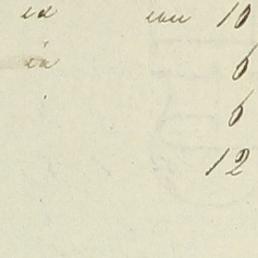 id 10
id 6
6
12